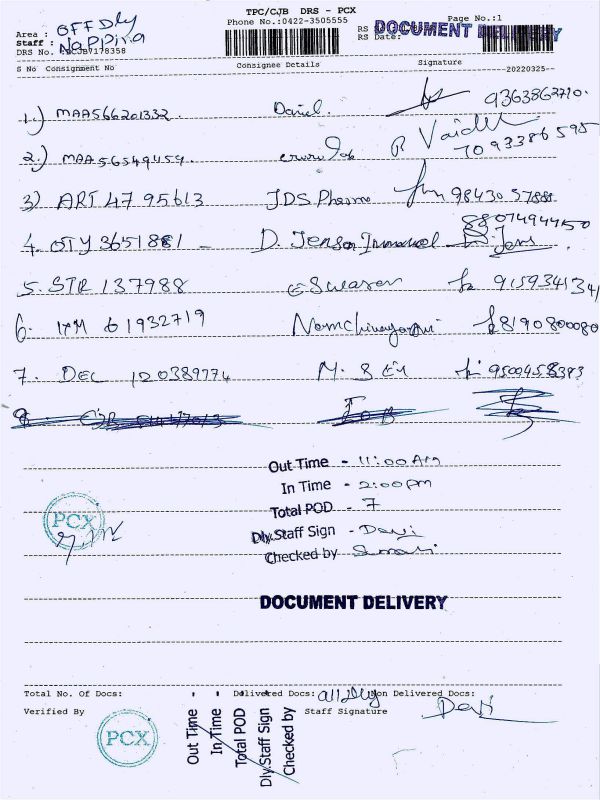 TPC/CJB DRS - PCX
Phone No.:0422-3505555
Page No.:1
Area : OFF Dly
Staff :
DRS No. CJB7178358
RS
RS Date:
DOCUMENT DELIVERY
S No Consignment No Consignee Details Signature 20220325
1.) MAA566201332 Daniel. 9363862710.
2.) MAA56549454 R Vaidh 7093386595
3) ART 4795613 JDS Pharma 98430 57888
8807494450
4. OTY 3651881 - D. Jenson Immanuel Jens
5. STR 137988 Eswaran 9159341341
6. 61932719 8190800080
7. DEC 120389774 M. S 9500458383
8. IOB
Out Time - 11:00 Am
In Time - 2:00pm
Total POD - 7
Dly.Staff Sign - Davi
Checked by
PCX
DOCUMENT DELIVERY
Total No. Of Docs: Delivered Docs: all Dly Non Delivered Docs:
Verified By Staff Signature Davi
PCX
Out Time
In Time
Total POD
Dly.Staff Sign
Checked by